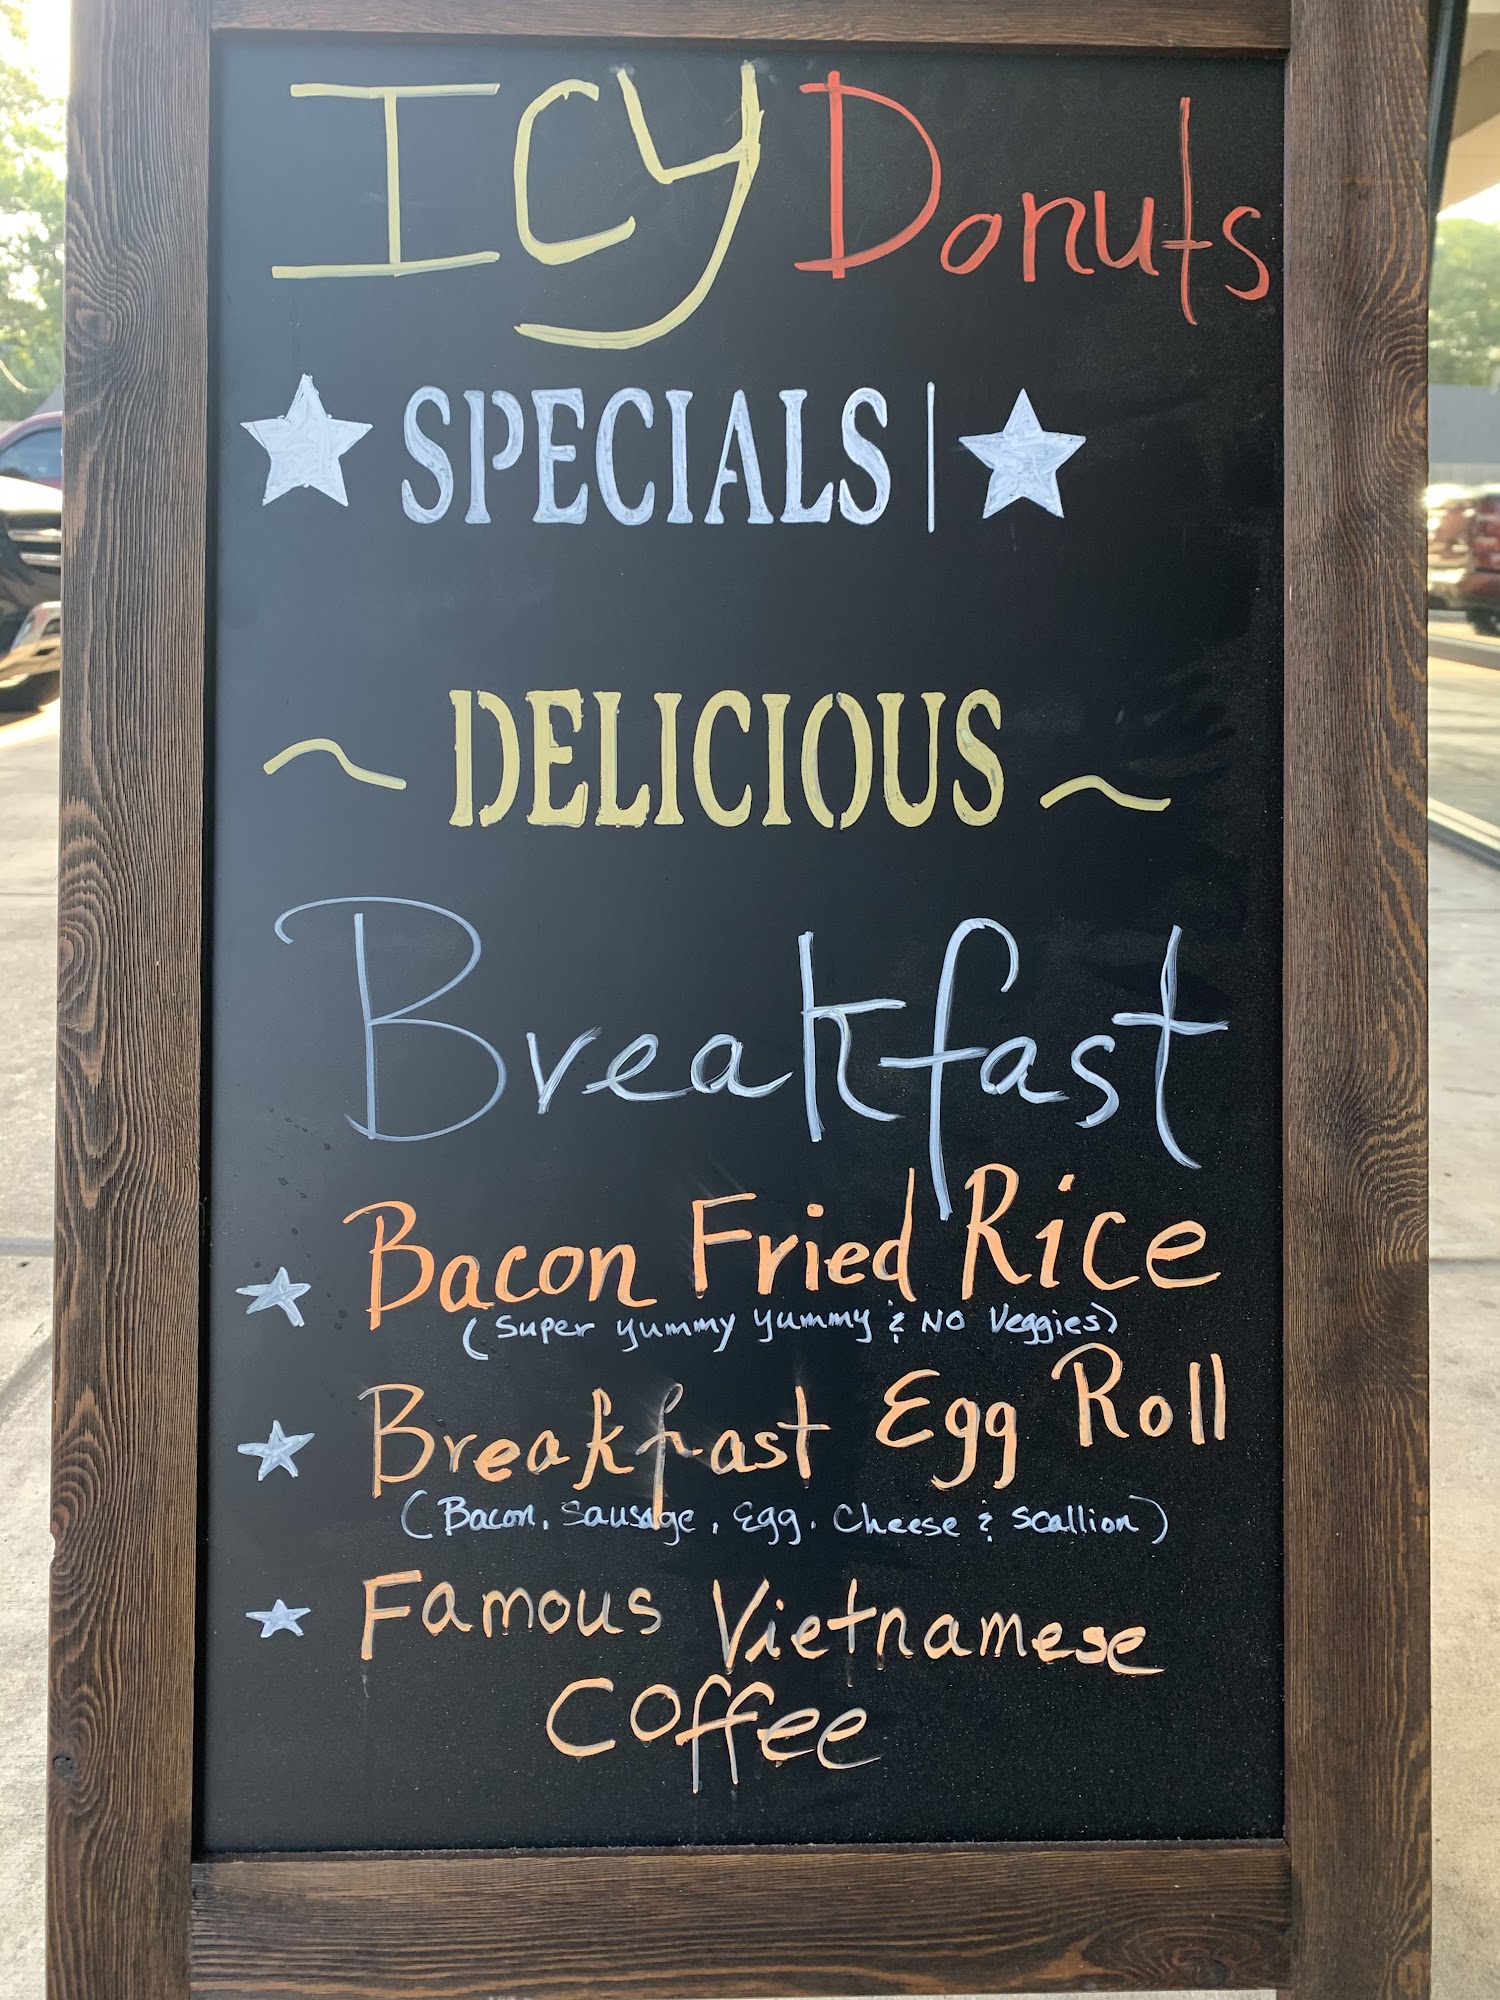 ICY Donuts
SPECIALS |
~ DELICIOUS ~
Breakfast
Bacon Fried Rice
(Super yummy yummy & NO Veggies)
Breakfast Egg Roll
(Bacon, Sausage, Egg, Cheese & Scallion)
Famous Vietnamese
Coffee